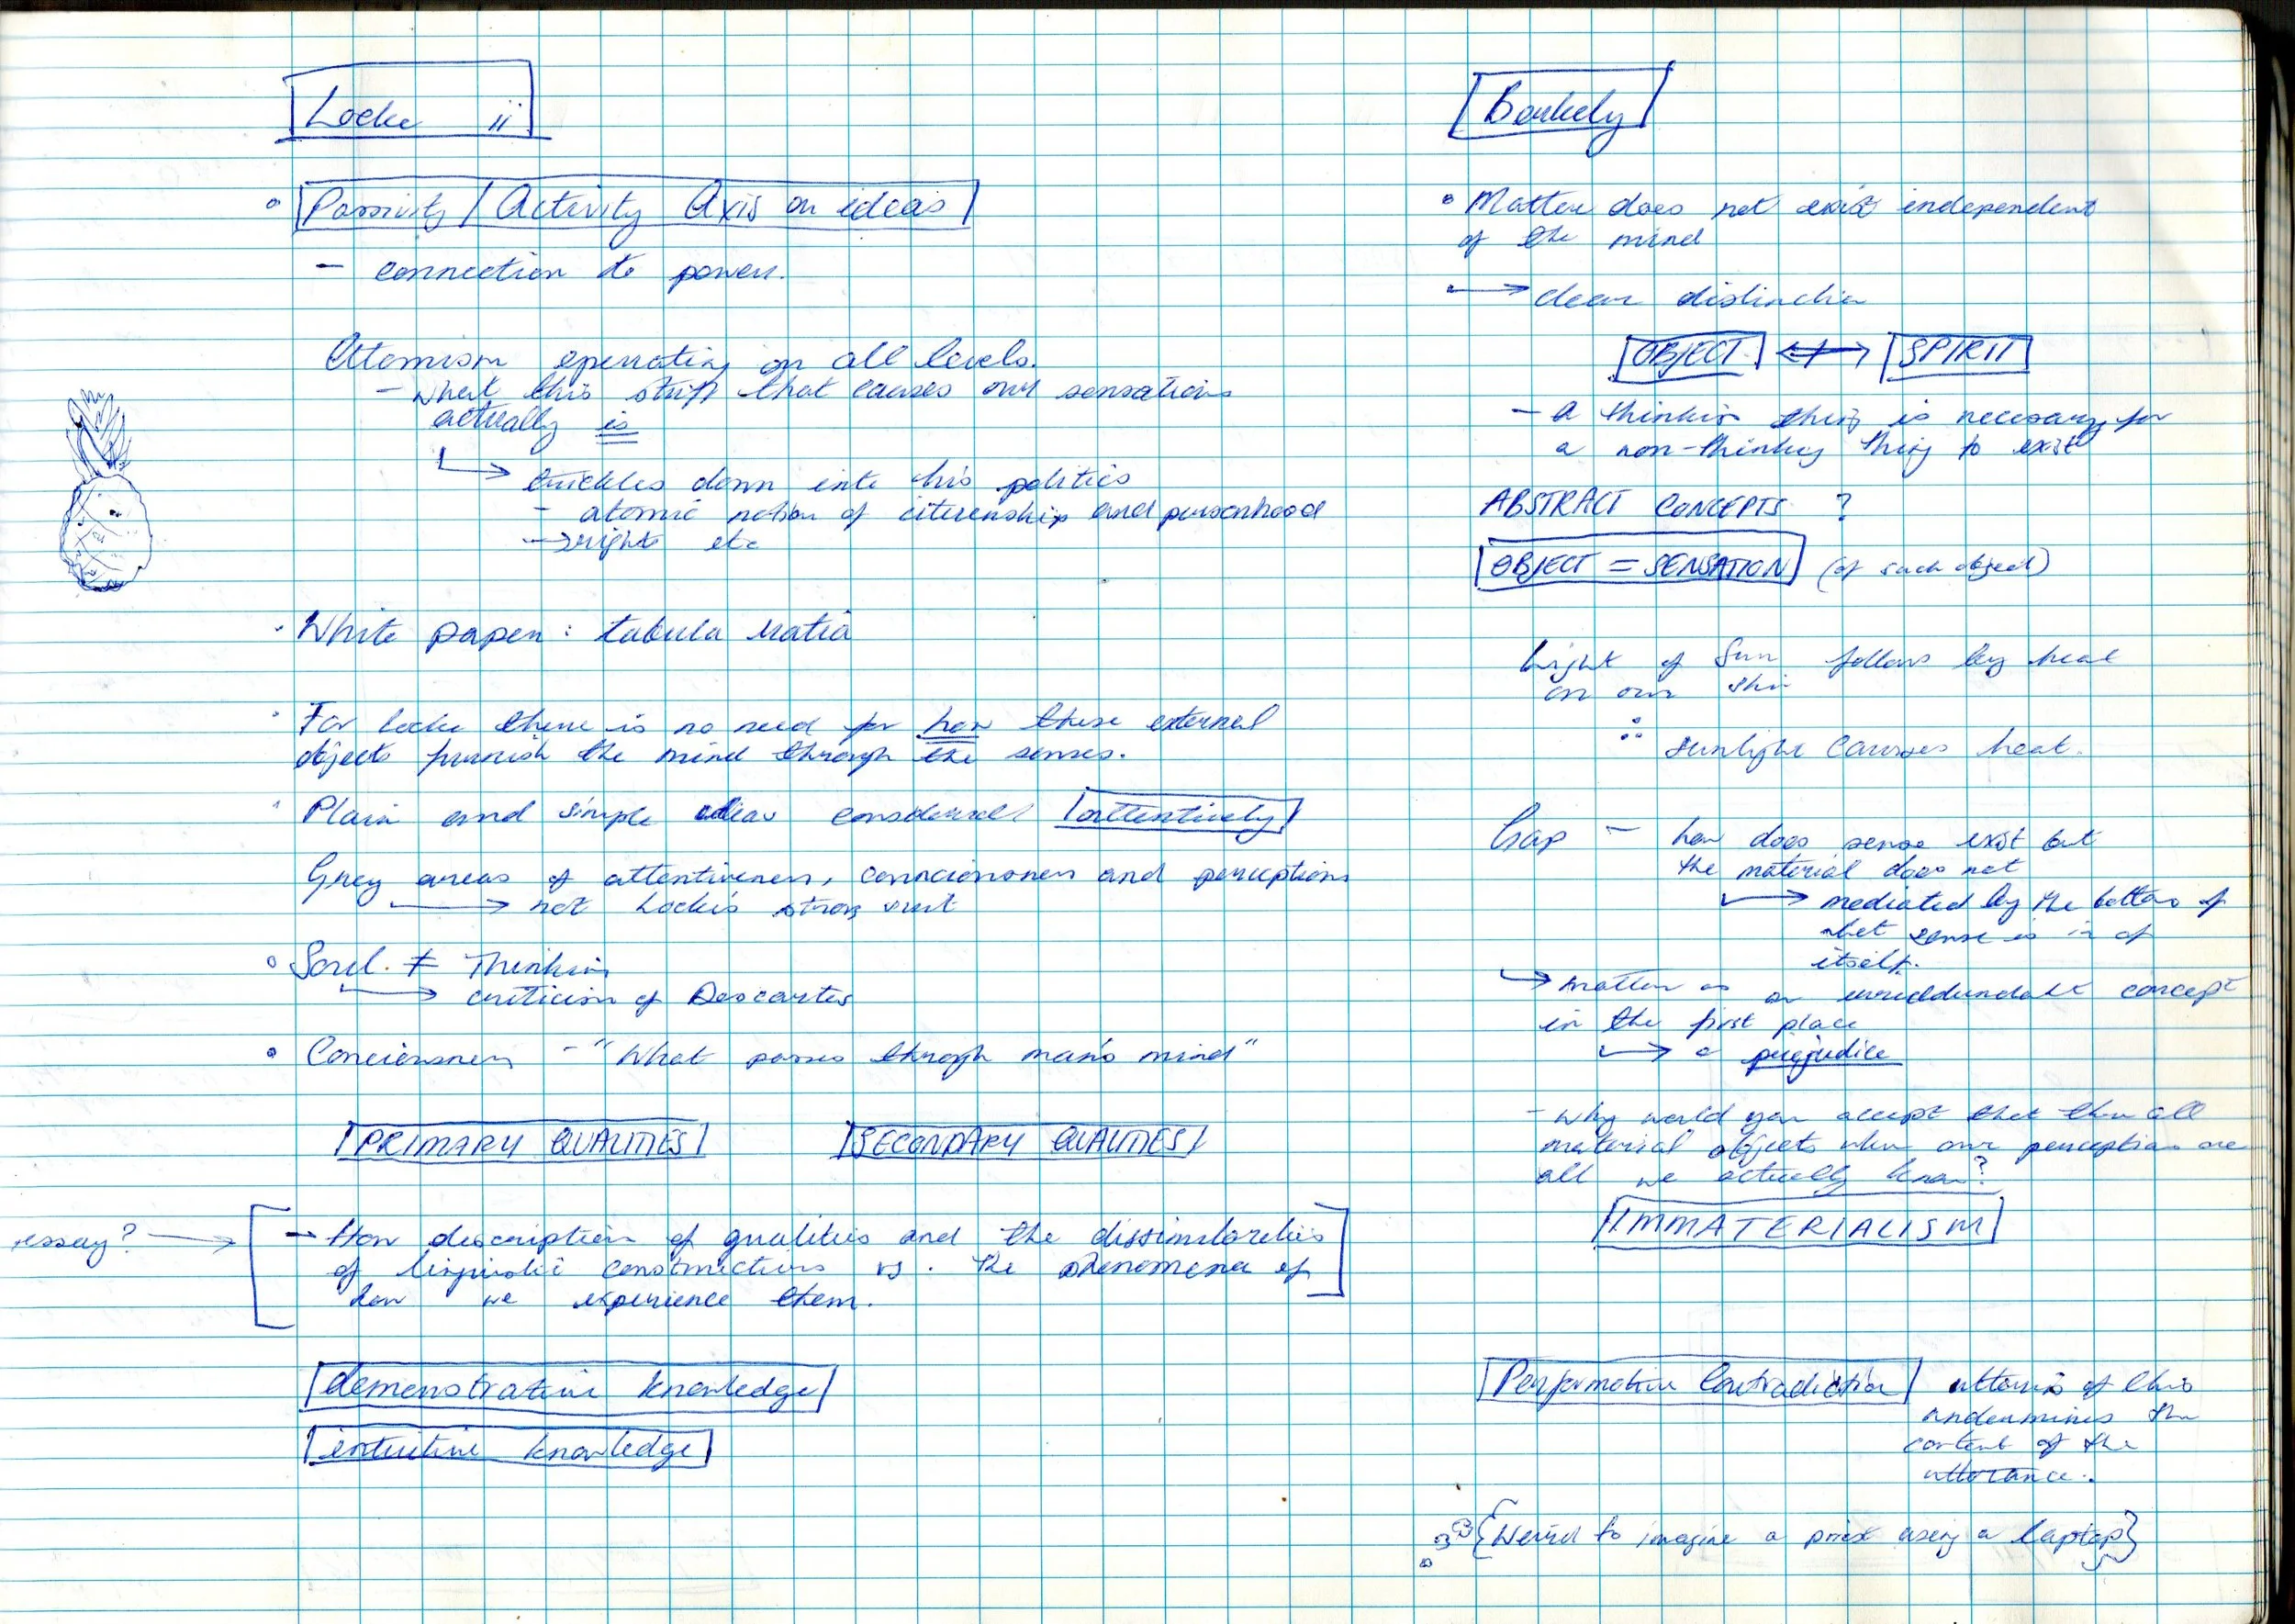 Locke ii
Passivity / Activity Axis on ideas
- connection to power.
Atomism operating on all levels.
- What this stuff that causes our sensations
actually is
trickles down into his politics
- atomic notion of citizenship and personhood
→ rights etc
White paper: tabula
For Locke there is no need for how these external
objects furnish the mind through the senses.
Plain and simple ideas considered attentively
Grey areas of attentiveness, consciousness and perceptions
→ not Locke's strong suit
Soul ≠ Thinking
→ criticism of Descartes
Conciousness - "What passes through man's mind"
PRIMARY QUALITIES SECONDARY QUALITIES
essay? →
- How description of qualities and the dissimilarities
of linguistic constructions vs. the phenomena of
how we experience them.
demonstrative knowledge
intuitive knowledge
Berkely
Matter does not exist independent
of the mind
→ clear distinction
OBJECT ↔ SPIRIT
- a thinking thing is necessary for
a non-thinking thing to exist
ABSTRACT CONCEPTS ?
OBJECT = SENSATION (of such object)
Light of Sun follows by heat
on our skin
∴ sunlight causes heat.
Gap - how does sense exist but
the material does not
→ mediated by the of
what sense is in of
itself.
→ matter as an concept
in the first place
→ a prejudice
- Why would you accept that all
material objects when our perception are
all we actually know?
IMMATERIALISM
Performative Contradiction of this
undermines the
content of the
utterance.
{Weird to imagine a priest using a laptop}